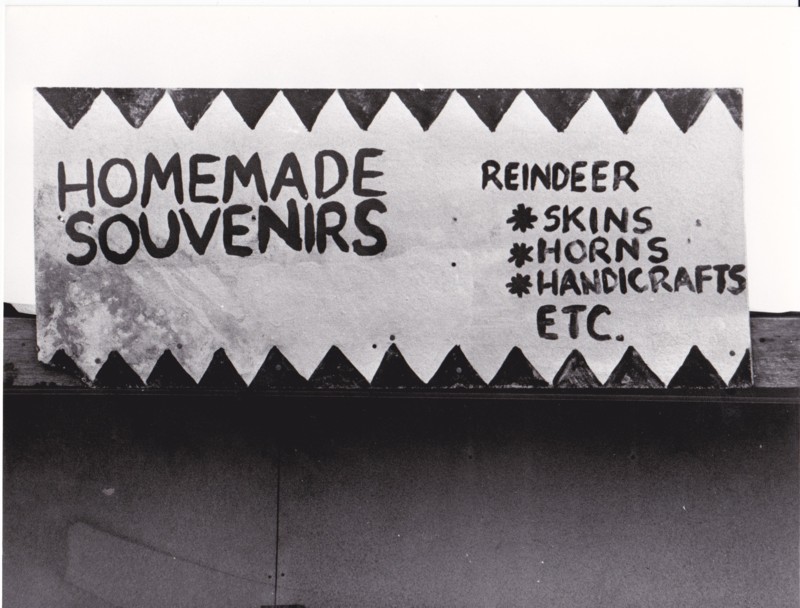 HOMEMADE
SOUVENIRS
REINDEER
* SKINS
* HORNS
* HANDICRAFTS
ETC.